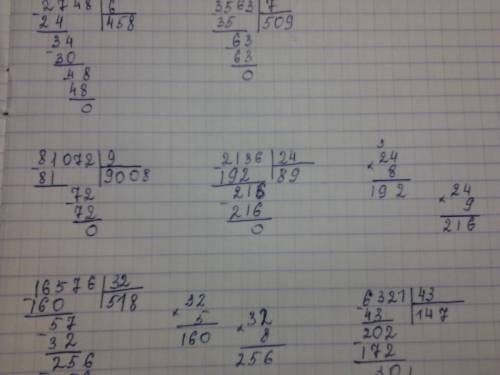 2748 | 6
24 | 458
34
30
48
48
0
3563 | 7
35 | 509
63
63
0
81072 | 9
81 | 9008
72
72
0
2136 | 24
192 | 89
216
216
0
3
24
× 8
192
24
× 9
216
16576 | 32
160 | 518
57
32
256
32
× 5
160
32
× 8
256
6321 | 43
43 | 147
202
172
301